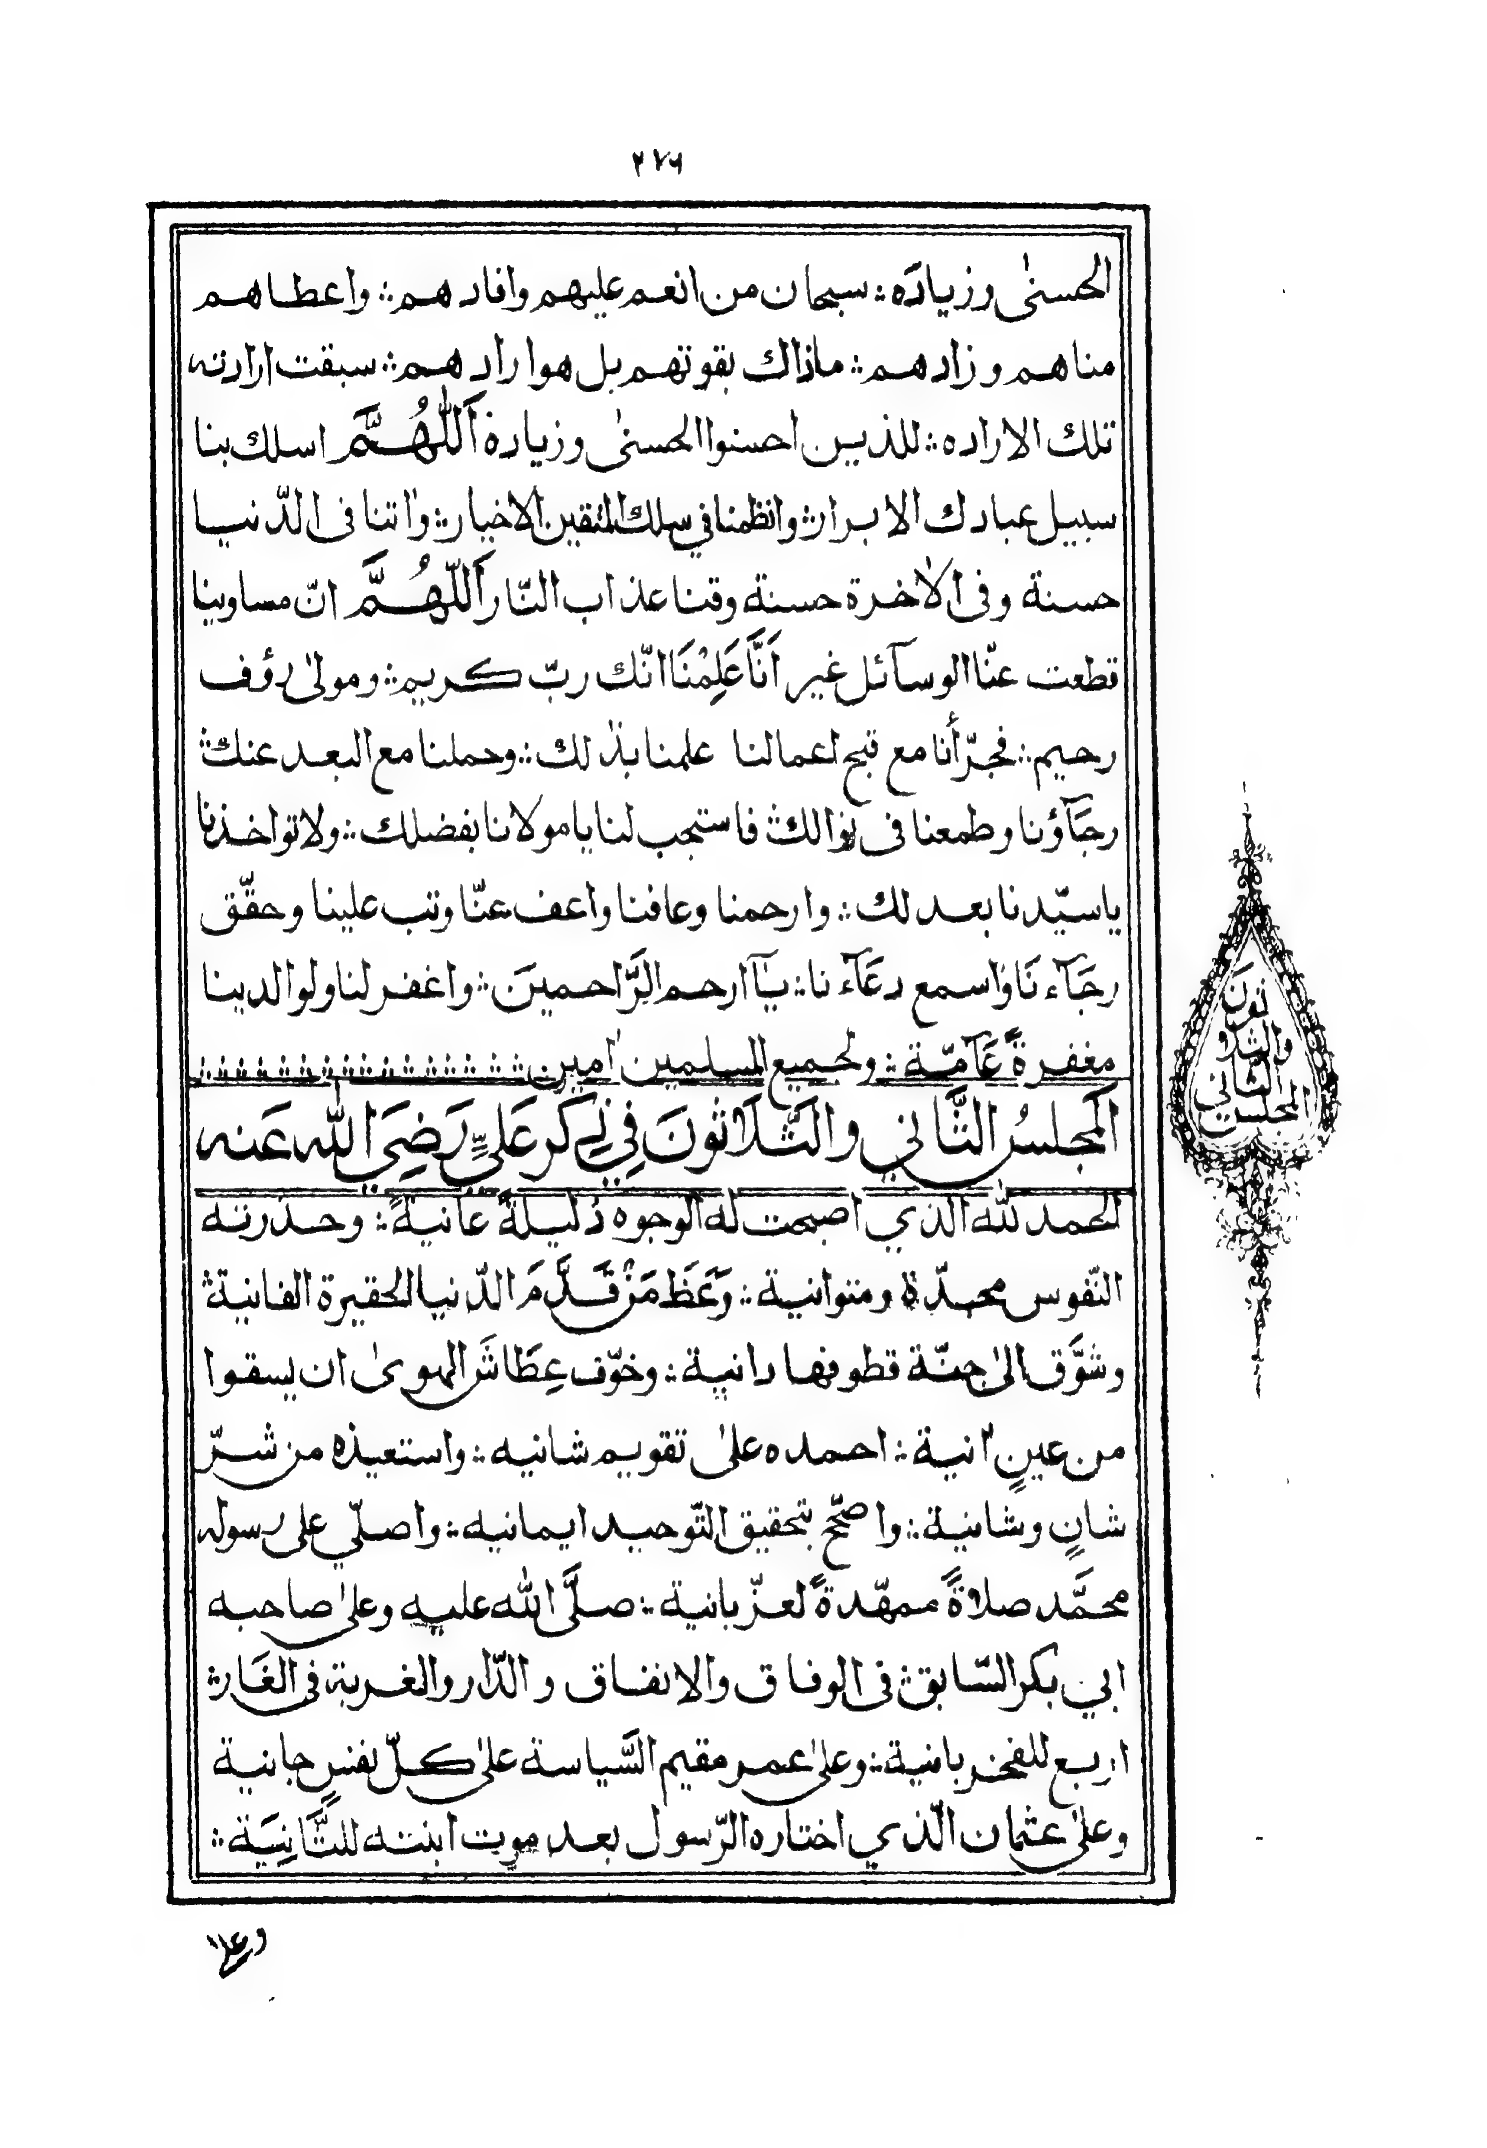 ٢٧٦
الحسنٰى وزياده ؞ سبحان من انعم عليهم وافادهم ؞ واعطاهم
مناهم وزادهم ؞ ماذاك بقوتهم بل هو ارادهم ؞ سبقت ارادته
تلك الاراده ؞ للذين احسنوا الحسنٰى وزيادة اَللّٰهُمَّ اسلك بنا
سبيل عبادك الابرار ؞ وانظمنا في سلك المتقين الاخيار ؞ واٰتنا فى الدّنيا
حسنة وفى الاٰخرة حسنة وقنا عذاب النّار اَللّٰهُمَّ انّ مساوينا
قطعت عنّا الوسآئل غير اَنَّا عَلِمْنَا انّك ربّ كريم ؞ ومولىٰ رؤف
رحيم ؞ فجرّأنا مع قبح اعمالنا علمنا بذٰلك ؞ وحملنا مع البعد عنك ؞
رجَآؤنا وطمعنا فى نوالك ؞ فاستجب لنا يا مولانا بفضلك ؞ ولا تواخذنا
ياسيّدنا بعدلك ؞ وارحمنا وعافنا واعف عنّا وتب علينا وحقّق
رجَآء نَا واسمع دعَآء نا ؞ يآ ارحم الرَّاحمينَ ؞ واغفر لنا ولوالدينا
مغفرةً عَآمّة ؞ ولجميع المسلمين اٰمين ؞
اَلمَجلسُ الثَّاني والثَّلَاثونَ فِي ذِكر عَليٍّ رَضِيَ اللّٰه عَنه
الحمد للّٰه الذي اصبحت له الوجوه ذليلةً عانيةً ؞ وحذرته
النّفوس مجدّة ومتوانية ؞ وَعَظَ مَنْ قَدَّمَ الدّنيا الحقيرة الفانية ؞
وشوَّق الىٰ جنّة قطوفها دانية ؞ وخوّف عِطَاشَ الهوىٰ ان يسقوا
من عينٍ اٰنية ؞ احمده علىٰ تقويم شانيه ؞ واستعيذه من شرّ
شانٍ وشانية ؞ واصحّح بتحقيق التّوحيد ايمانيه ؞ واصلّي على رسوله
محمَّد صلاةً ممهّدةً لعزّ بانية ؞ صلَّى اللّٰه عليه وعلىٰ صاحبه
ابي بكر السّابق ؞ فى الوفاق والانفاق والدّار والغربة فى الغَار ؞
اربع للفخر بانية ؞ وعلىٰ عمر مقيم السَّياسة علىٰ كلّ نفسٍ جانية
وعلىٰ عثمان الّذي اختاره الرّسول بعد موت ابنته للثَّانِيَة ؞
وعلىٰ
المجلس
الثانى
والثلاثون